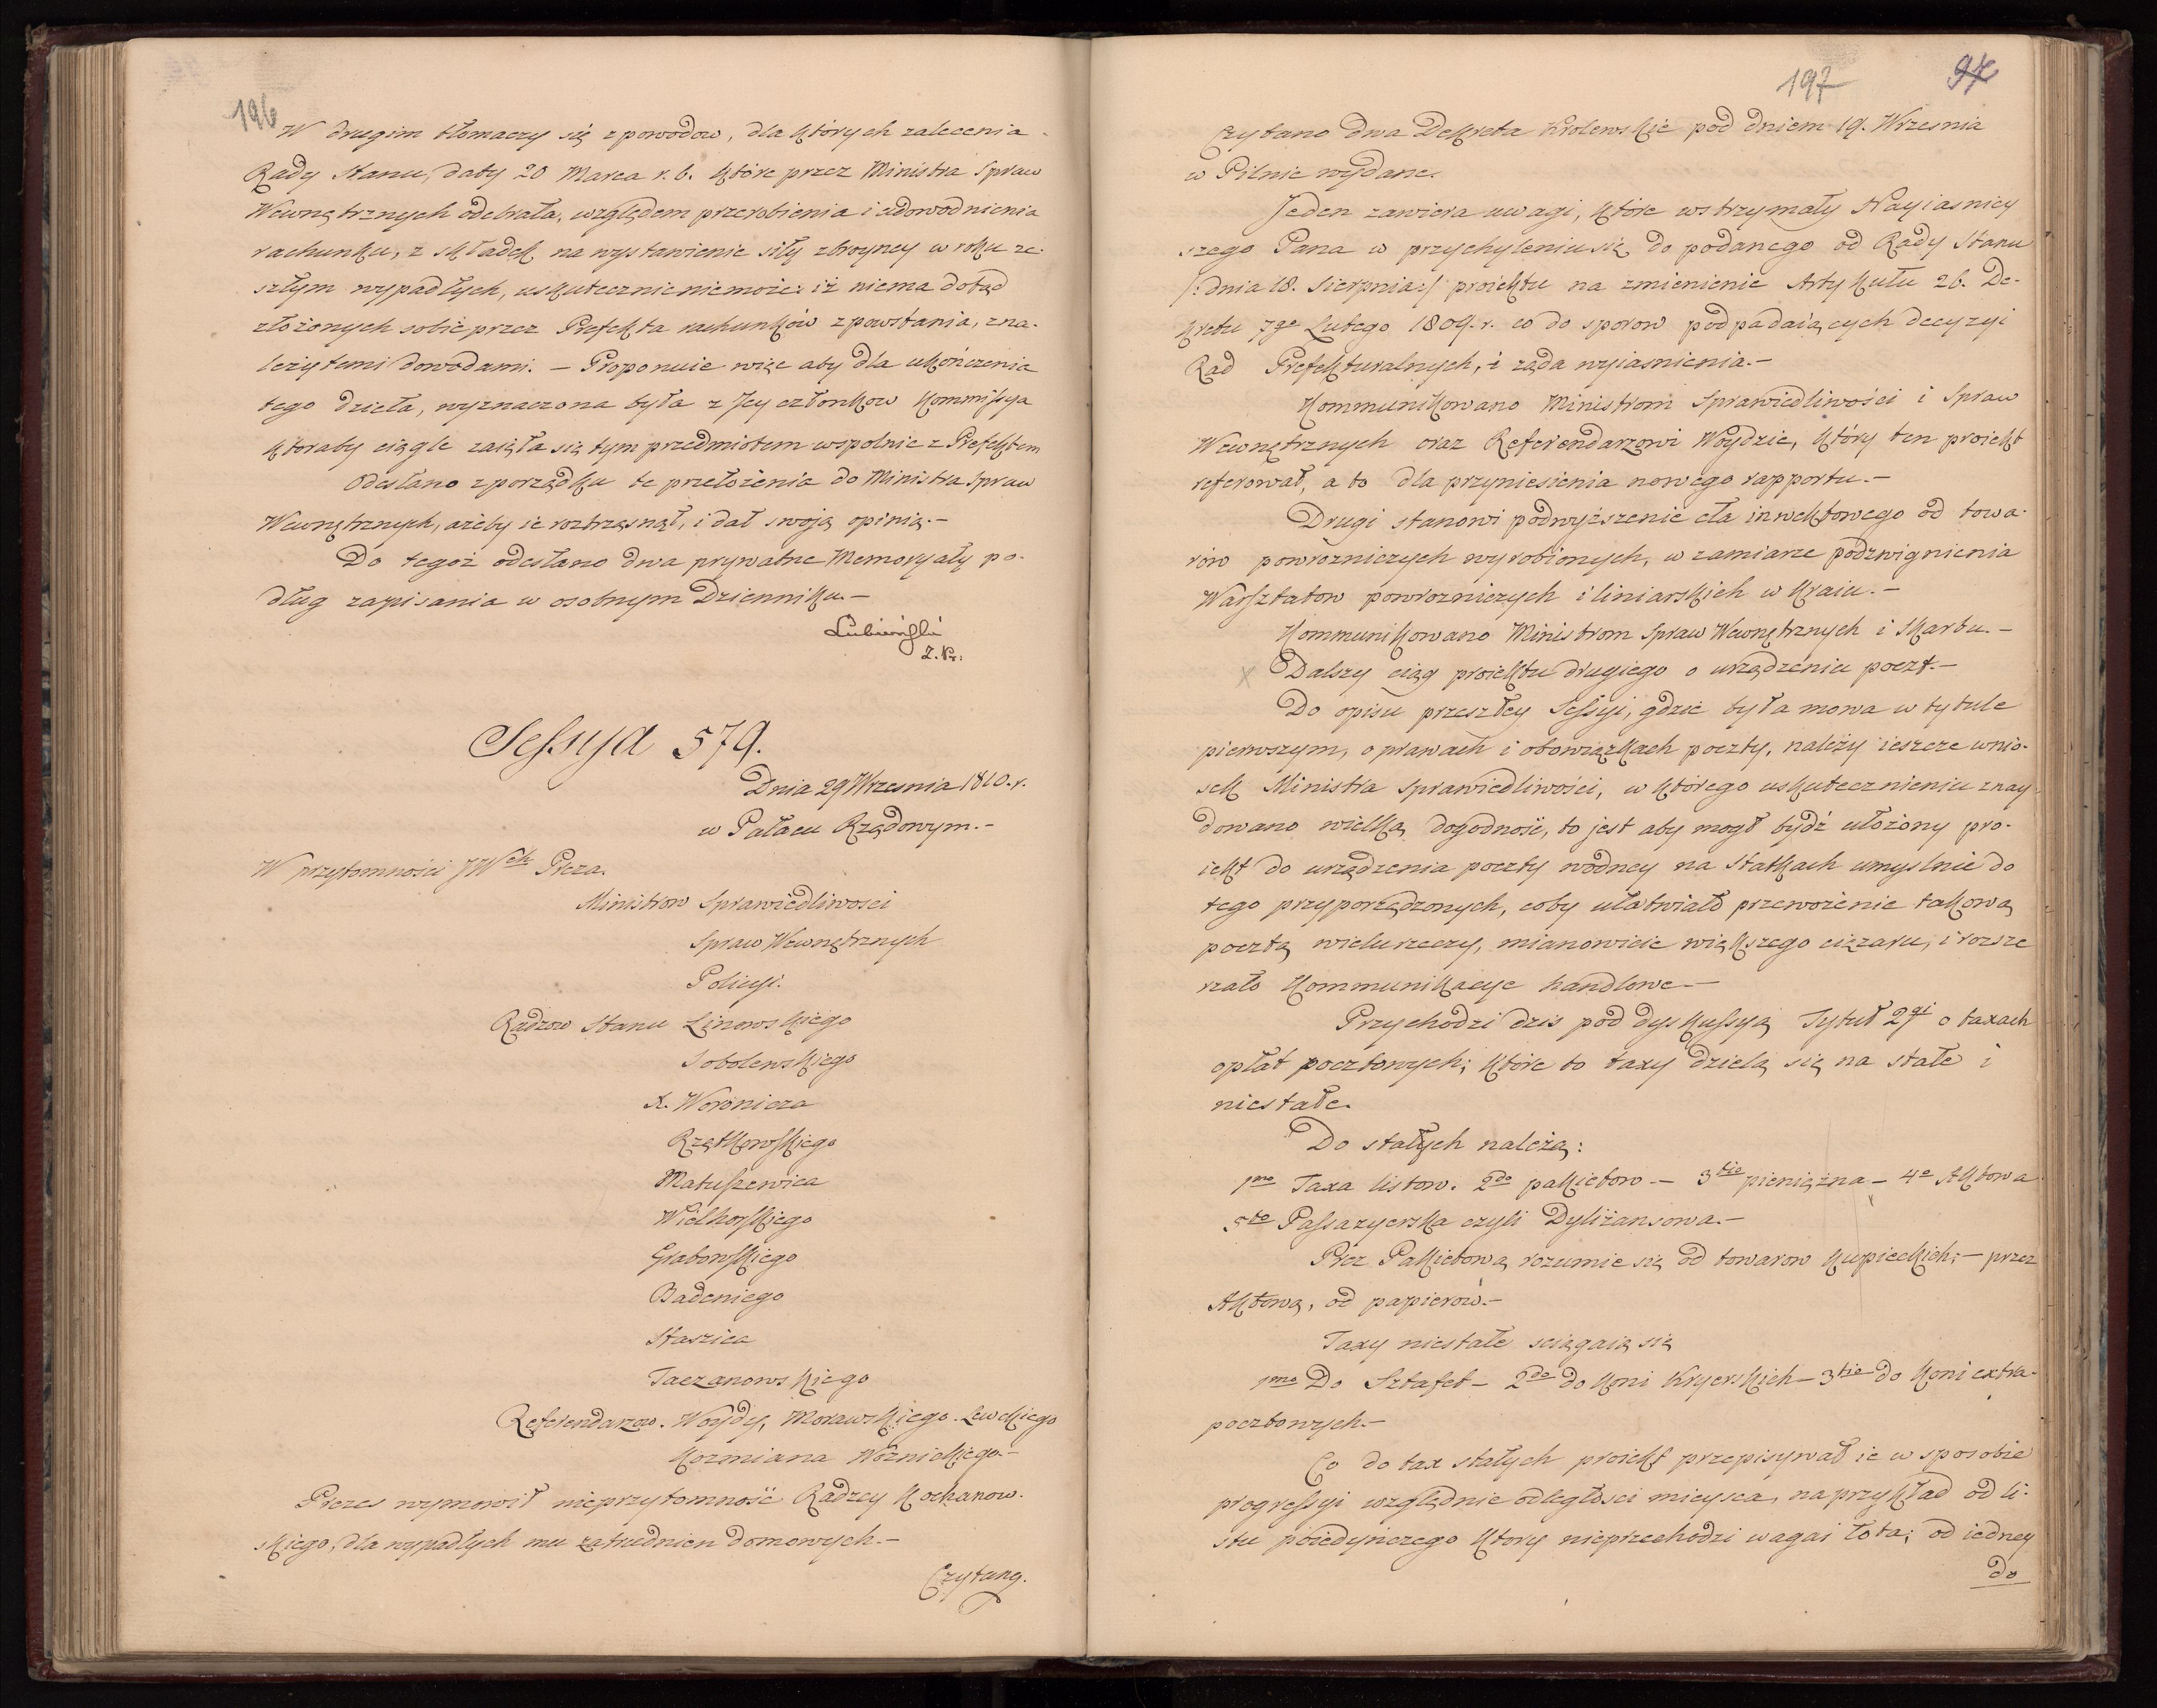 196
W drugim tłomaczy się z powodow, dla których zalecenia
Rady Stanu, daty 20 Marca r. b. które przez Ministra Spraw
Wewnętrznych odebrała, względem przerobienia i udowodnienia
rachunku, z składek na wystawienie siły zbroyney w roku ze-
szłym wypadłych, uskutecznić niemoże: iż niema dotąd
złożonych sobie przez Prefekta rachunków z powstania, zna-
leżytemi dowodami. – Proponuie więc aby dla ukończenia
tego dzieła, wyznaczona była z Jey członkow Kommissya
ktoraby ciągle zaięła się tym przedmiotem wspolnie z Prefektem
Odesłano z porządku te przełożenia do Ministra Spraw
Wewnętrznych, ażeby ie roztrząsnął, i dał swoją opinią.–
Do tegoż odesłano dwa prywatne Memoryały po-
dług zapisania w osobnym Dzienniku.–
Lubieński
Z. Pr:
Sessya 579.
Dnia 29 Wrzesnia 1810. r.
w Pałacu Rządowym.–
W przytomności JWch Preza.
Ministrow Sprawiedliwosci
Spraw Wewnętrznych
Policyi.
Radzcow Stanu Linowskiego
Sobolewskiego
X. Woronicza
Rzętkowskiego
Matuszewica
Wielhorskiego
Grabowskiego
Badeniego
Staszica
Taczanowskiego
Referendarzow. Woydy, Morawskiego. Lewckiego
Kozmiana Woznickiego.–
Prezes wymowił nieprzytomność Radzcy Kochanow-
skiego, dla wypadłych mu zatrudnien domowych.–
Czytano.
197 97
Czytano dwa Dekreta Krolewskie pod dniem 19. Wrzesnia
w Pilnie wydane.
Jeden zawiera uwagi, które wstrzymały Nayiasniey
szego Pana w przychyleniu się do podanego od Rady Stanu
/: dnia 18. Sierpnia :/ proiektu na zmienienie Artykułu 26. De-
kretu 7go Lutego 1809. r. co do sporow podpadaiących decyzyi
Rad Prefekturalnych, i ząda wyiasnienia.–
Kommunikowano Ministrom Sprawiedliwości i Spraw
Wewnętrznych oraz Referendarzowi Woydzie, który ten proiekt
referował, a to dla przyniesienia nowego rapportu.–
Drugi stanowi podwyższenie cła inwektowego od towa-
row powrozniczych wyrobionych, w zamiarze podzwignienia
Warsztatow powrozniczych i liniarskich w kraiu.–
Kommunikowano Ministrom Spraw Wewnętrznych i Skarbu.–
x Dalszy ciąg proiektu drugiego o urządzeniu poczt.–
Do opisu przeszłey Sessyi, gdzie była mowa w tytule
pierwszym, o prawach i obowiązkach poczty, należy ieszcze wnio-
sek Ministra Sprawiedliwości, w którego uskutecznieniu znay-
dowano wielką dogodność, to jest aby mogł bydź ułożony pro-
iekt do urządzenia poczty wodney na Statkach umyslnie do
tego przyporządzonych, coby ułatwiało przewożenie takową
pocztą wielu rzeczy, mianowicie większego ciężaru, i rozsze
rzało Kommunikacye handlowe.–
Przychodzi dzis pod dyskussyą Tytuł 2gi o taxach
opłat pocztowych; które to taxy dzielą się na stałe i
niestałe.
Do stałych należą:
1mo Taxa listow. 2do pakietow – 3tio pieniężna – 4o Aktowa
5to Passazyerska czyli Dyliżansowa.–
Przez Pakietową rozumie się od towarow kupieckich; – przez
Aktową, od papierów.–
Taxy niestałe sciągaią się
1mo Do Sztafet – 2do do koni Kryerskich – 3tio do koni extra-
pocztowych.–
Co do tax stałych proiekt przepisywał ie w sposobie
progressyi względnie odległosci mieysca, na przykład od li-
stu poiedyńczego ktory nieprzechodzi wagai łota; od iedney
do